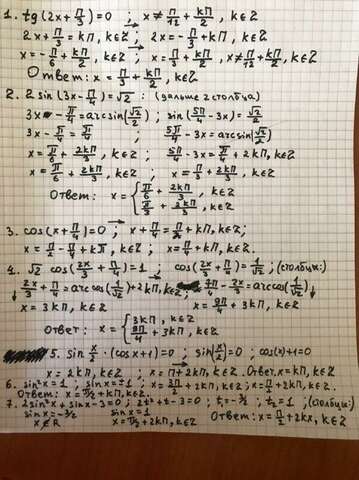 1. tg(2x + π/3) = 0 ; x ≠ π/12 + kπ/2, k∈Z
2x + π/3 = kπ, k∈Z ; 2x = -π/3 + kπ, k∈Z
x = -π/6 + kπ/2, k∈Z ; x = π/3 + kπ/2, x ≠ π/12 + kπ/2, k∈Z
Ответ: x = π/3 + kπ/2, k∈Z
2. 2 sin(3x - π/4) = √2 : (дальше 2 столбца)
3x - π/4 = arcsin(√2/2) ; sin(5π/4 - 3x) = √2/2
3x - π/4 = π/4 ; 5π/4 - 3x = arcsin(√2/2)
x = π/6 + 2kπ/3, k∈Z ; 5π/4 - 3x = π/4 + 2kπ, k∈Z
x = π/6 + 2kπ/3, k∈Z ; x = π/3 + 2kπ/3, k∈Z
Ответ: x = { π/6 + 2kπ/3, k∈Z
π/3 + 2kπ/3, k∈Z
3. cos(x + π/4) = 0 → x + π/4 = π/2 + kπ, k∈Z;
x = π/2 - π/4 + kπ, k∈Z ; x = π/4 + kπ, k∈Z.
4. √2 cos(2x/3 + π/4) = 1 ; cos(2x/3 + π/4) = 1/√2 ; (столбцы:)
2x/3 + π/4 = arccos(1/√2) + 2kπ, k∈Z; - 2x/3 = arccos(1/√2)
x = 3kπ, k∈Z ; x = 9π/4 + 3kπ, k∈Z
Ответ: x = { 3kπ, k∈Z
9π/4 + 3kπ, k∈Z
5. sin x/2 · (cos x + 1) = 0 ; sin(x/2) = 0 ; cos(x) + 1 = 0
x = 2kπ, k∈Z ; x = π + 2kπ, k∈Z. Ответ: x = kπ, k∈Z
6. sin²x = 1 ; sin x = ±1 ; x = 3π/2 + 2kπ, k∈Z ; x = π/2 + 2kπ, k∈Z.
Ответ: x = π/2 + kπ, k∈Z.
7. 2sin²x + sin x - 3 = 0 ; 2t² + t - 3 = 0 ; t₁ = -3/2 ; t₂ = 1 ; (столбцы:)
sin x = -3/2 sin x = 1 Ответ: x = π/2 + 2kπ, k∈Z
x ∉ R x = π/2 + 2kπ, k∈Z